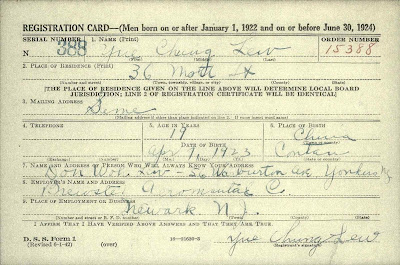 REGISTRATION CARD—(Men born on or after January 1, 1922 and on or before June 30, 1924)
SERIAL NUMBER 1. NAME (Print) ORDER NUMBER
N 388 Yue Chung Lew 15388
(First) (Middle) (Last)
2. PLACE OF RESIDENCE (Print)
36 Mott St
(Number and street) (Town, township, village, or city) (County) (State)
[THE PLACE OF RESIDENCE GIVEN ON THE LINE ABOVE WILL DETERMINE LOCAL BOARD
JURISDICTION; LINE 2 OF REGISTRATION CERTIFICATE WILL BE IDENTICAL]
3. MAILING ADDRESS
Same
(Mailing address if other than place indicated on line 2. If same insert word same)
4. TELEPHONE 5. AGE IN YEARS 6. PLACE OF BIRTH
19 China
DATE OF BIRTH (Town or county)
Apr 1 1923 Canton
(Exchange) (Number) (Mo.) (Day) (Yr.) (State or country)
7. NAME AND ADDRESS OF PERSON WHO WILL ALWAYS KNOW YOUR ADDRESS
Don Won Lew - 36 Warburton Ave Yonkers NY
8. EMPLOYER'S NAME AND ADDRESS
Brewster C.
9. PLACE OF EMPLOYMENT OR BUSINESS
Newark N. J.
(Number and street or R. F. D. number) (Town) (County) (State)
I AFFIRM THAT I HAVE VERIFIED ABOVE ANSWERS AND THAT THEY ARE TRUE.
D. S. S. Form 1
(Revised 6-1-42) (over) Yue Chung Lew
(Registrant's signature)